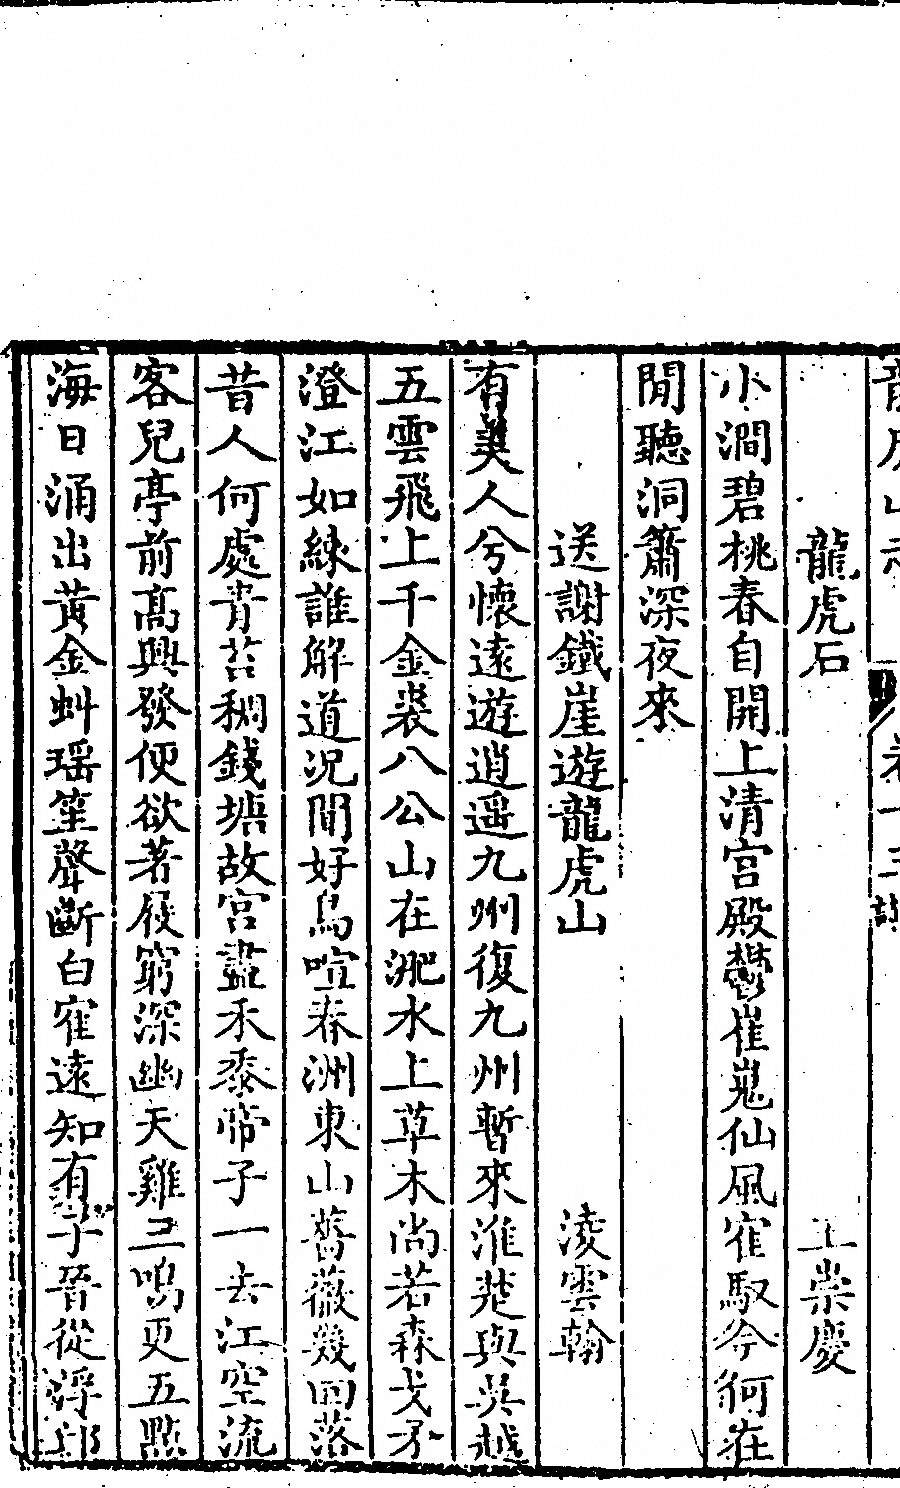 龍虎山志 卷十三 詩
龍虎石 王崇慶
小澗碧桃春自開上清宮殿鬱崔嵬仙風寉馭今何在
閒聽洞簫深夜來
送謝鐵崖遊龍虎山 淩雲翰
有美人兮懷遠遊逍遥九州復九州暫來淮楚與吳越
五雲飛上千金裘八公山在淝水上草木尚若森戈矛
澄江如練誰解道况聞好鳥喧春洲東山薔薇幾回落
昔人何處青苔稠錢塘故宮盡禾黍帝子一去江空流
客兒亭前高興發便欲著屐窮深幽天雞三鳴更五點
海日涌出黃金虬瑶笙聲斷白寉遠知有子晉從浮邱